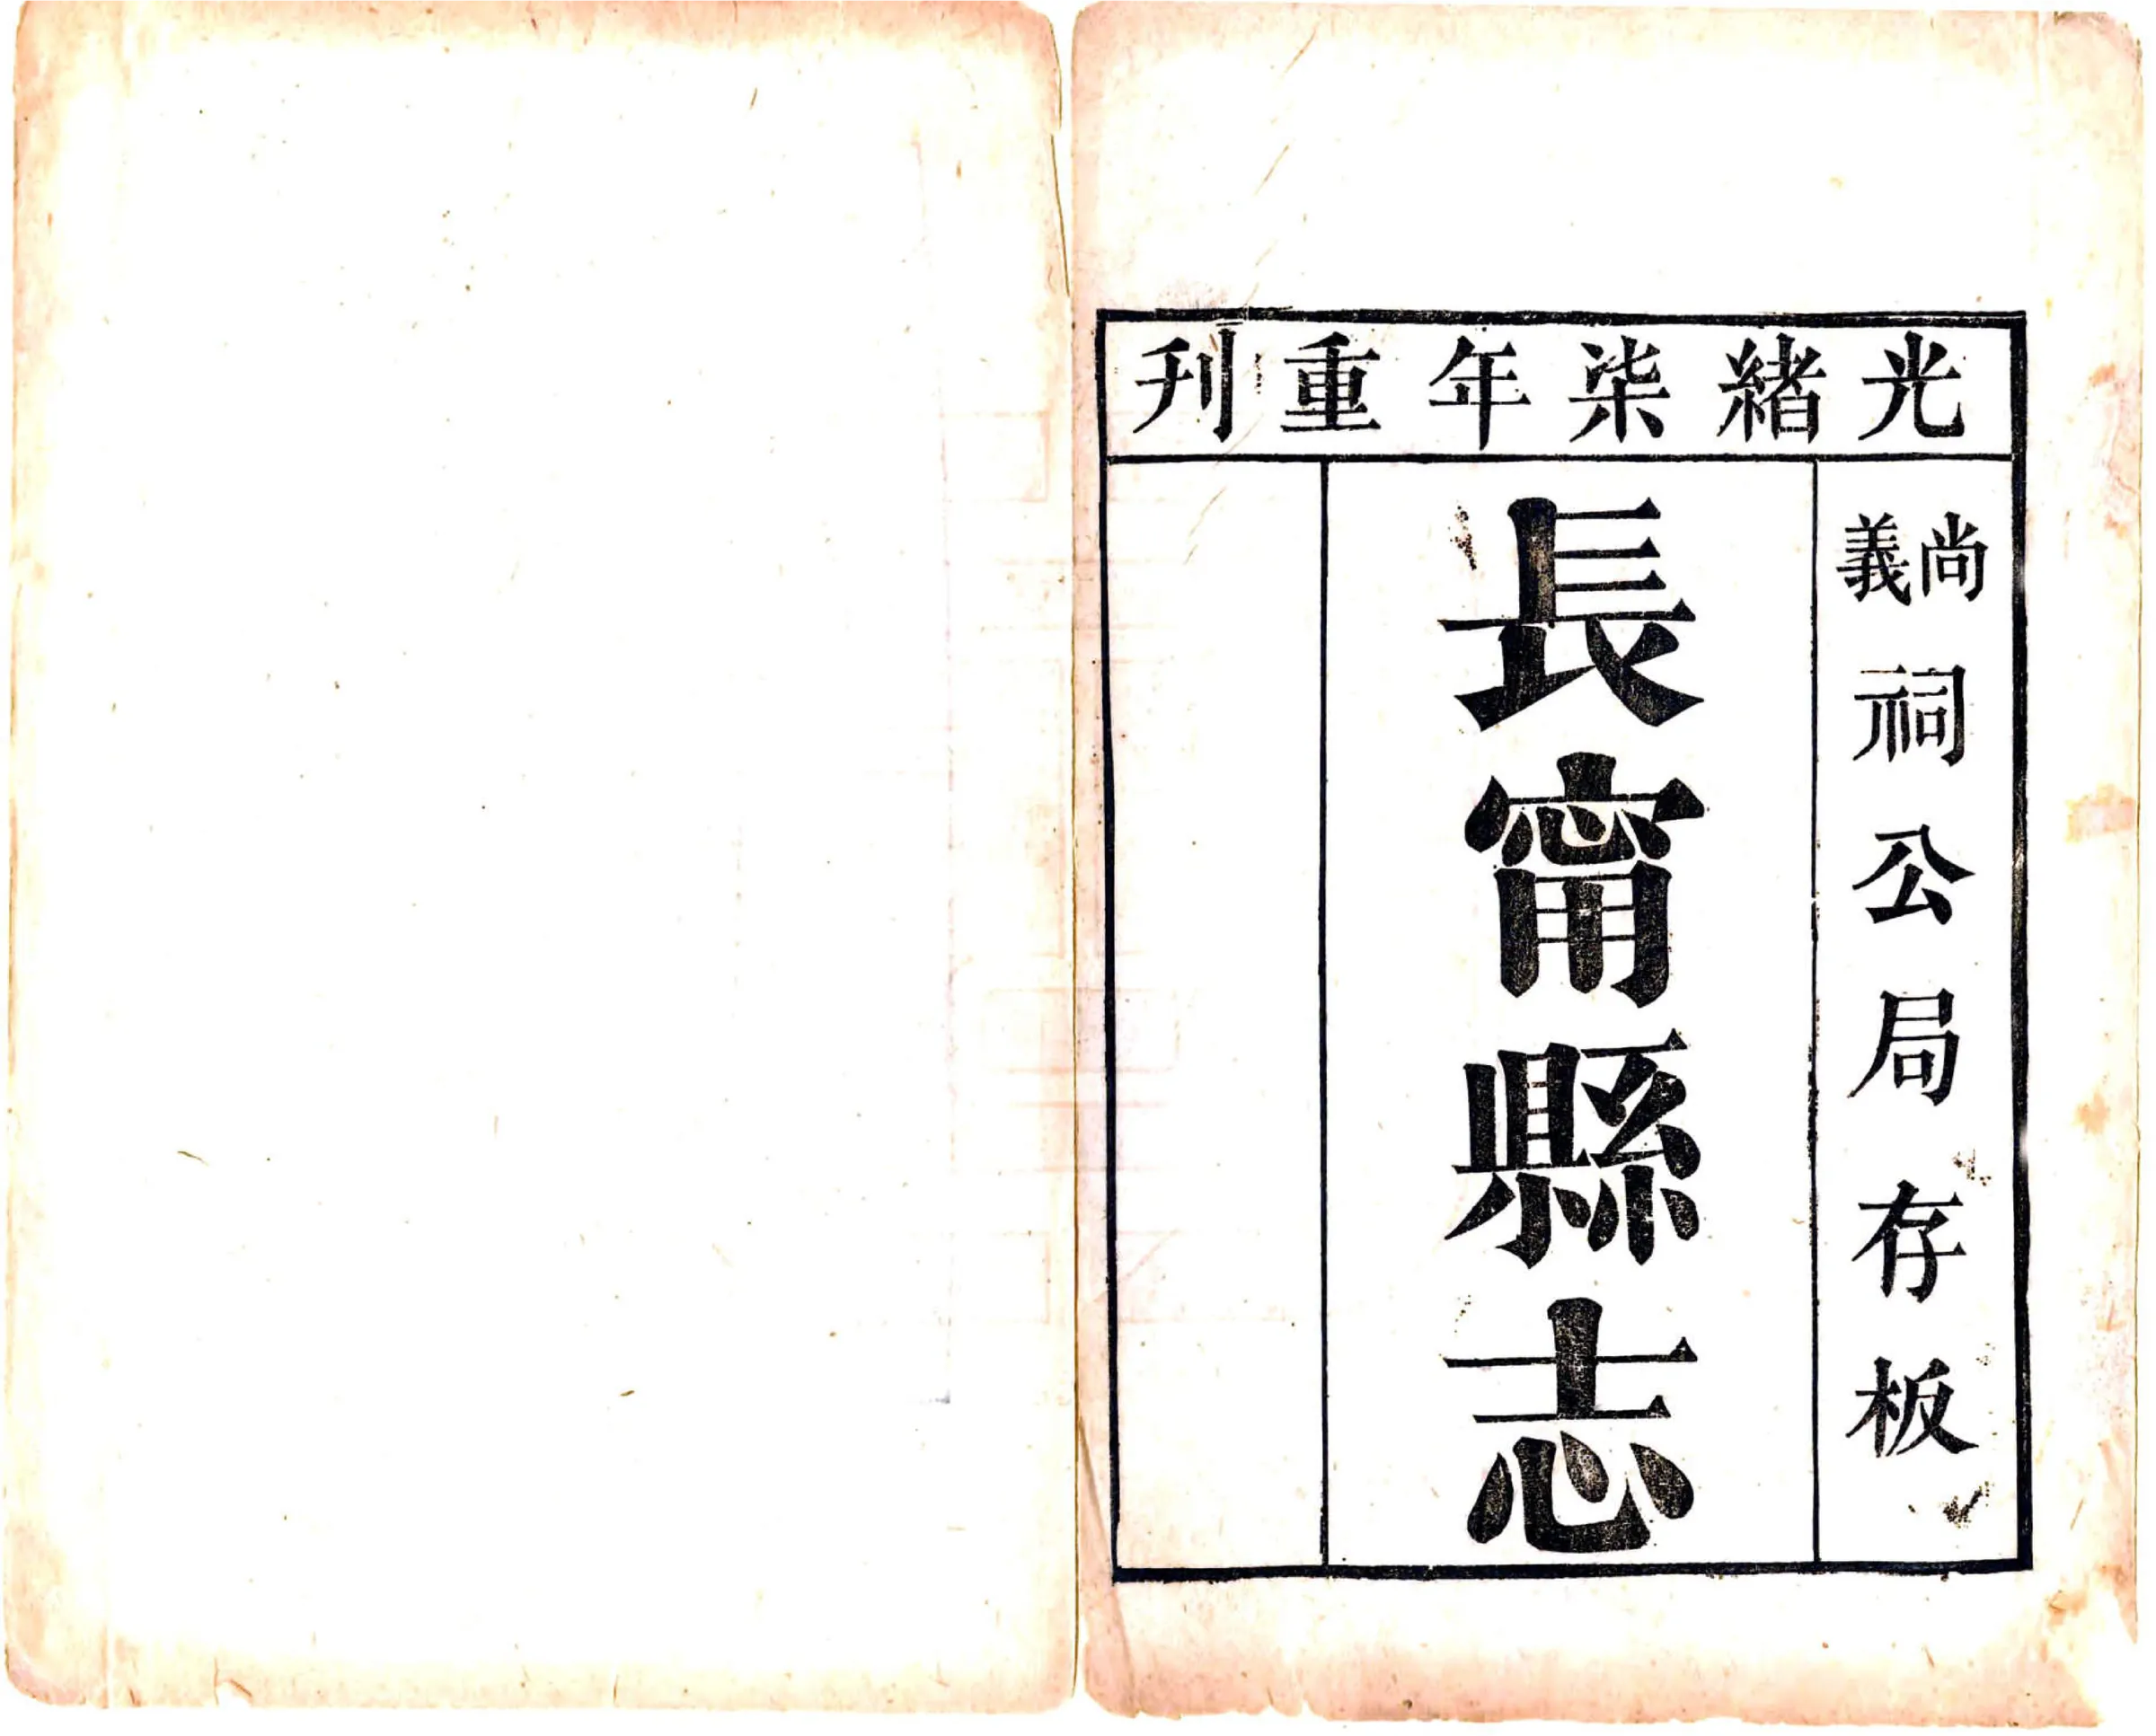 光緒柒年重刋
尚義祠公局存板
長甯縣志